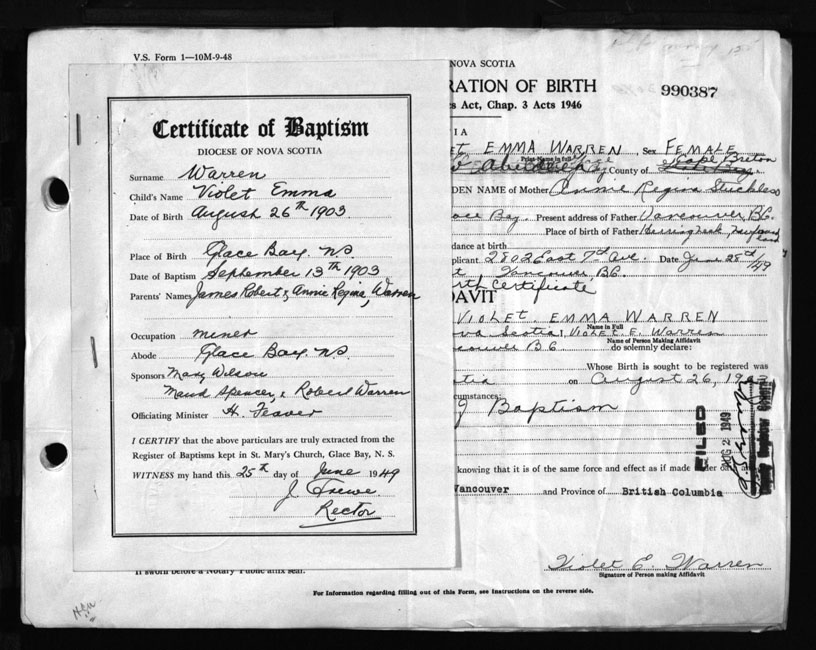 V.S. Form 1—10M-9-48
Certificate of Baptism
DIOCESE OF NOVA SCOTIA
Surname Warren
Child's Name Violet Emma
Date of Birth August 26th 1903
Place of Birth Glace Bay. N.S
Date of Baptism September 13th 1903
Parents' Names James Robert & Annie Regina, Warren
Occupation miner
Abode Glace Bay. N.S
Sponsors Mary Wilson
Maud Spencer, & Robert Warren
Officiating Minister H. Feaver
I CERTIFY that the above particulars are truly extracted from the
Register of Baptisms kept in St. Mary's Church, Glace Bay, N. S.
WITNESS my hand this 25th day of June 1949
Rector
NOVA SCOTIA
RATION OF BIRTH
990387
s Act, Chap. 3 Acts 1946
IA
ET EMMA WARREN, Sex FEMALE
Print Name in full
County of Cape Breton
DEN NAME of Mother Annie Regina Stuckless
ace Bay. Present address of Father Vancouver, B.C.
Place of birth of Father Herring Neck, Newfoundland
dance at birth
plicant 2802 East 7th Ave. Date June 28th/49
Vancouver, B.C.
rth Certificate
DAVIT
VIOLET. EMMA WARREN
Name in Full
va Scotia, VIOLET. E. Warren
Name of Person Making Affidavit
ncouver B C do solemnly declare:
Whose Birth is sought to be registered was
otia on August 26, 1903
cumstances:
of Baptism
FILED
AUG 2 1949
knowing that it is of the same force and effect as if made under o
Vancouver and Province of British Columbia
Violet E. Warren
Signature of Person making Affidavit
If sworn before a Notary Public affix seal.
For Information regarding filling out of this Form, see Instructions on the reverse side.